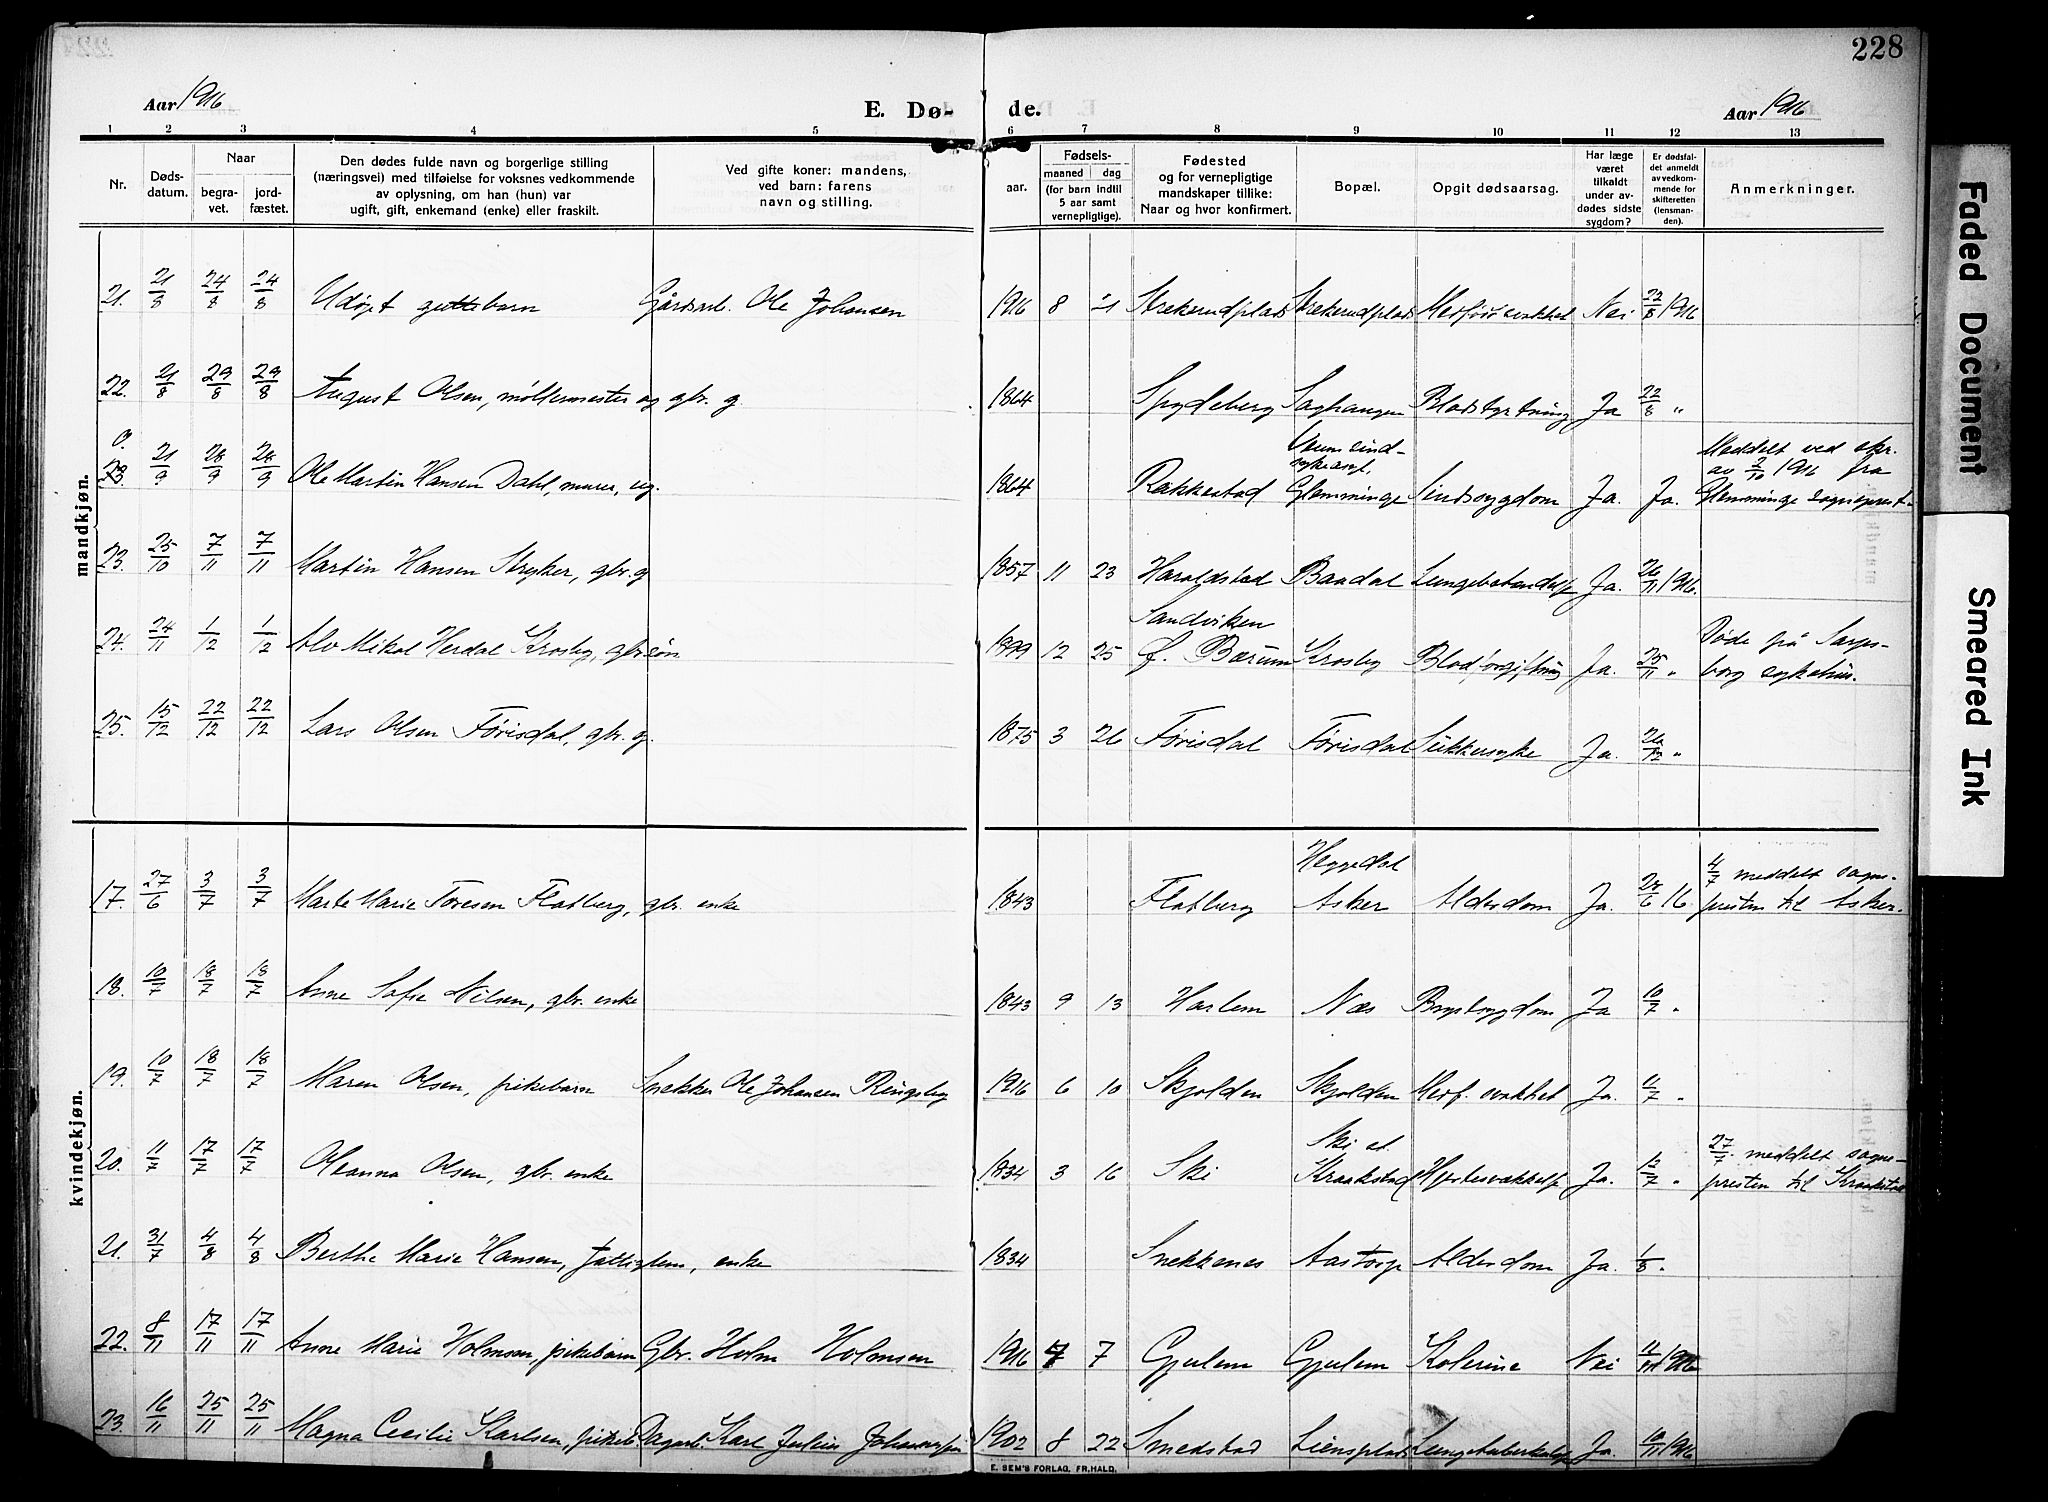 228
Aar 1916 E. Dø- de. Aar 1916
1 2 3 4 5 6 7 8 9 10 11 12 13
Nr.
Døds-
datum.
Naar
begra-
vet.
jord-
fæstet.
Den dødes fulde navn og borgerlige stilling
(næringsvei) med tilføielse for voksnes vedkommende
av oplysning, om han (hun) var
ugift, gift, enkemand (enke) eller fraskilt.
Ved gifte koner: mandens,
ved barn: farens
navn og stilling.
Fødsels-
aar.
maaned dag
(for barn indtil
5 aar samt
vernepligtige).
Fødested
og for vernepligtige
mandskaper tillike:
Naar og hvor konfirmert.
Bopæl.
Opgit dødsaarsag.
Har læge
været
tilkaldt
under av-
dødes sidste
sygdom?
Er dødsfal-
det anmeldt
av vedkom-
mende for
skifteretten
(lensman-
den).
Anmerkninger.
mandkjøn.
21. 21/8 24/8 24/8 Udøpt guttebarn Gårdsarb. Ole Johansen 1916 8 21 Nei 22/8 1916
22. 21/8 29/8 29/8 August Olsen, møllermester og gbr. g. 1864 Spydeberg Saghaugen Blodstyrtning Ja 22/8 "
23 21/9 28/9 28/9 Ole Martin Hansen Dahl, murer, ug. 1864 Rakkestad Glemminge Sindssygdom Ja. Ja. Meddelt ved skr.
av 2/10 1916 fra
Glemminge sogneprest.
23. 25/10 7/11 7/11 Martin Hansen Stryker, gbr. g. 1857 11 23 Haraldstad Baadal Ja. 26/11 1916.
24. 24/11 1/12 1/12 Alv Mikal Herdal Krosby, gbr.søn 1899 12 25 Sandviken
f. Bærum Krosby Blodforgiftning Ja. 25/11 " Døde på Sarps-
borg sykehus.
25. 15/12 22/12 22/12 Lars Olsen Førisdal, gbr. g. 1875 3 26 Førisdal Førisdal Sukkersyke Ja. 26/12 "
kvindekjøn.
17. 27/6 3/7 3/7 Marte Marie Toresen Flatberg, gbr. enke 1843 Flatberg Heggedal
Asker Alderdom Ja. 28/6 16. 4/7 meddelt sogne-
presten til Asker.
18. 10/7 18/7 18/7 Anne Sofie Nilsen, gbr. enke 1843 9 13 Harlem Næs Brystsygdom Ja 10/7 "
19. 10/7 18/7 18/7 Maren Olsen, pikebarn Snekker Ole Johansen Ringsby 1916 6 10 Skjolden Skjolden Medf. svakhet Ja. 11/7 "
20. 11/7 17/7 17/7 Oleanna Olsen, gbr. enke 1834 3 16 Ski Ski st.
Kraakstad Hjertesvækkelse Ja. 12/7 " 27/7 meddelt sogne-
presten til Kraakstad
21. 31/7 4/8 4/8 Berthe Marie Hansen, fattiglem, enke 1834 Snekkenes Aastorp Alderdom Ja. 1/8 "
22. 8/11 17/11 17/11 Anne Marie Holmsen, pikebarn Gbr. Holm Holmsen 1916 7 7 Gjulem Gjulem Kolerine Nei 11/11 1916
23. 16/11 25/11 25/11 Magna Cecilie Karlsen, pikeb. Dagarb. Karl Julius Johannessen 1902 8 22 Smedstad Liensplads Lungetuberkulose Ja. 18/11 1916
E. SEM'S FORLAG, FR.HALD.
Faded Document
Smeared Ink